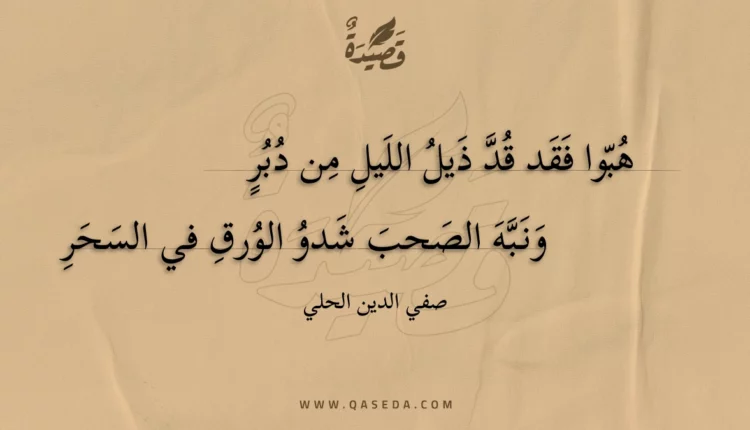 قَصِيدَةٌ
هُبّوا فَقَد قُدَّ ذَيلُ اللَيلِ مِن دُبُرٍ
وَنَبَّهَ الصَحبَ شَدوُ الوُرقِ في السَحَرِ
صفي الدين الحلي
WWW.QASEDA.COM